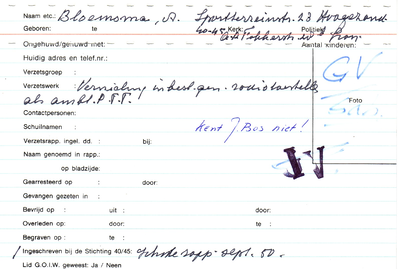 Naam etc.: Bloemsma, A. Sportterreinstr. 23 Hoogezand
Geboren: te 40-45 Kerk: Politiek
Ongehuwd/gehuwd met: Aantal kinderen:
Huidig adres en telf.nr.:
Verzetsgroep :
Verzetswerk : Vernieling in besl. gen. radiotoestellen
als ambt. P.T.T.
GV
Foto
Contactpersonen:
Schuilnamen : Kent J. Bos niet!
Verzetsrapp. ingel. dd. : bij:
Naam genoemd in rapp.:
op bladzijde:
Gearresteerd op : door:
Gevangen gezeten in :
Bevrijd op : uit : door:
Overleden op: te : door:
Begraven op : te :
Ingeschreven bij de Stichting 40/45: rapp. sept. 50.
Lid G.O.I.W. geweest: Ja / Neen